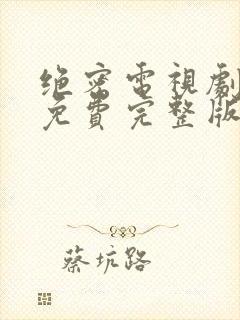 绝密電視劇
免費完整版
蔡坑路